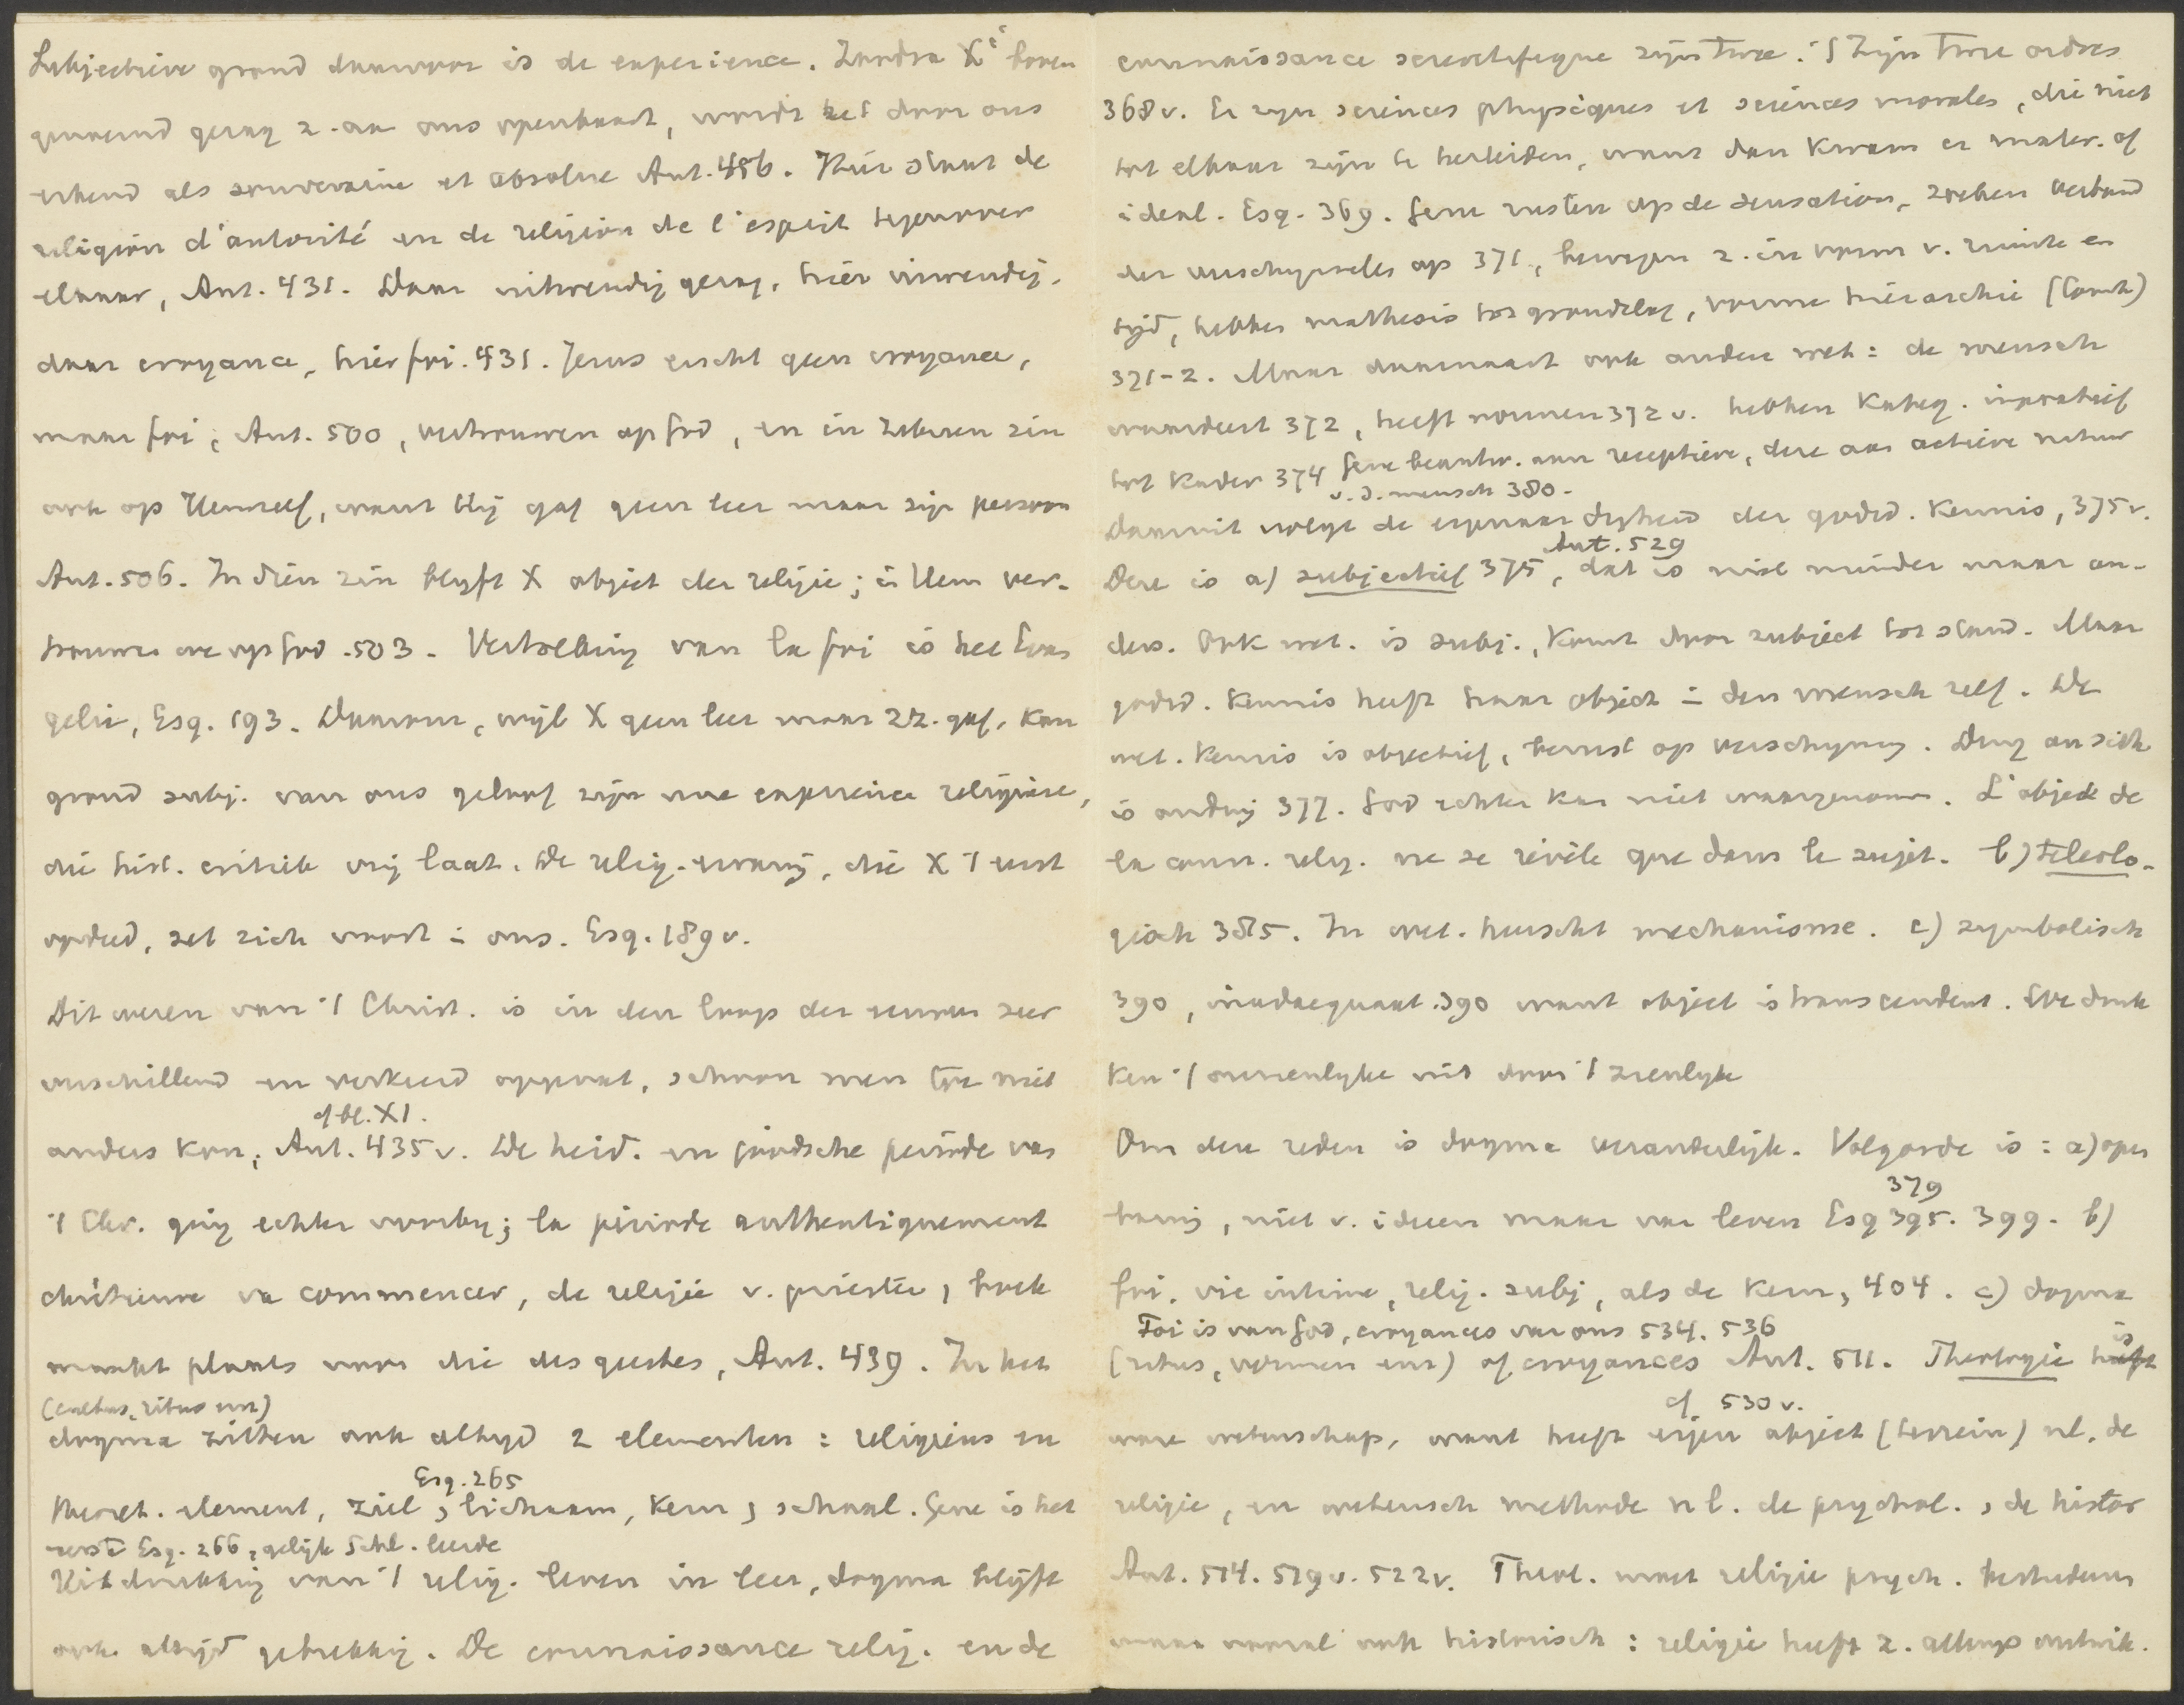 Subjectieve grond daarvoor is de experience. Zoodra X'
genoeg z. aan ons openbaart, wordt het door ons
erkend als souveraine et absolue Aut. 456. Hier staat de
religion d'autorité en de religion de l'esprit tegenover
elkaar, Aut. 431. Daar uitwendig gezag, hier inwendig.
daar croyance, hier foi. 431. Jezus eischt geen croyance,
maar foi, Aut. 500, vertrouwen op God, en in zekeren zin
ook op Hemzelf, want Hij gaf geen leer maar zijn persoon
Aut. 506. In dien zin blyft X object der religie; in Hem ver-
trouwen we op God. 503. Vertolking van la foi is het Evan
gelie, Esq. 193. Daarom, wijl X geen leer maar zz. gaf, kan
grond subj. van ons geloof zijn une expérience religieuse,
die hist. critiek vrij laat. De relig. ervaring, die X 't eerst
opdeed, zet zich voort in ons. Esq. 189v.
Dit wezen van 't Christ. is in den loop der eeuwen zeer
verschillend en verkeerd opgevat, schoon men toe niet
cf bl. XI.
anders kon, Aut. 435v. De heid. en joodsche periode van
't Chr. ging echter voorby; la période authentiquement
chrétienne va commencer, de religie v. priester, boek
maakt plaats voor die des geestes, Aut. 439. In het
(cultus, ritus enz)
dogma zitten ook altyd 2 elementen: religieus en
Esq. 265
theoret. element, ziel, lichaam, kern, schaal. Gene is het
eerste Esq. 266, gelijk Schl. leerde
Uitdrukking van 't relig. leven in leer, dogma blijft
ook altijd gebrekkig. De connaissance relig. en de
connaissance scientifique zijn twee. 't Zijn twee ordres
368v. Er zijn sciences physiques et sciences morales, die niet
tot elkaar zijn te herleiden, want dan kwam er mater. of
ideal. Esq. 369. Gene rusten op de sensation, zoeken verband
der verschynselen op 371, bewegen z. in vorm v. ruimte en
tijd, hebben mathesis tot grondslag, vorme hiërarchie (Comte)
371-2. Maar daarnaast ook andere wet: de mensch
waardeert 372, heeft normen 372v. hebben Kateg. imperatief
tot Kader 374 Gene beantw. aan receptieve, deze aan actieve natuur
v. d. mensch 380.
Daaruit volgt de eigenaardigheid der godsd. Kennis, 375v.
Aut. 529
Deze is a) subjectief 375, dat is niet minder maar an-
ders. Ook wet. is subj., komt door subject tot stand. Maar
godsd. Kennis heeft haar object in den mensch zelf. De
wet. Kennis is objectief, berust op verschyning. Ding an sich
is onding 377. God echter kan niet waargenomen. L'objet de
la conn. relig. ne se révèle que dans le sujet. b) teleolo-
gisch 385. In wet. heerscht mechanisme. c) symbolisch
390, inadaequaat. 390 want object is transcendent. We druk
ken 't onzienlyke uit door 't zienlyke
Om deze reden is dogma veranderlijk. Volgorde is: a) open
379
baring, niet v. ideeen maar van leven Esq 395. 399. b)
foi, vie intime, relig. subj, als de Kern, 404. c) dogma
Foi is van God, croyances van ons 534. 536
(ritus, vormen enz) of croyances Aut. 511. Theologie is
cf. 530v.
ware wetenschap, want heeft eigen object (terrein) nl. de
religie, en wetensch methode nl. de psychol., de histor
Aut. 514. 519v. 522v. Theol. moet religie psych. bestudeeren
maar vooral ook historisch: religie heeft z. allengs ontwik.